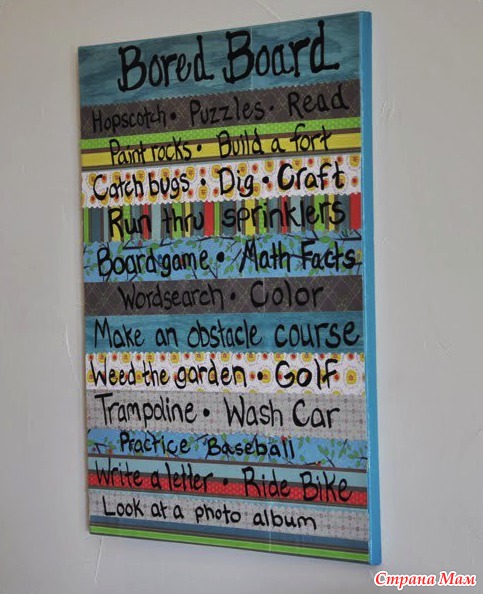 Bored Board
Hopscotch • Puzzles • Read
Paint rocks • Build a fort
Catch bugs • Dig • Craft
Run thru sprinklers
Board game • Math Facts
Wordsearch • Color
Make an obstacle course
Weed the garden • Golf
Trampoline • Wash Car
Practice Baseball
Write a letter • Ride Bike
Look at a photo album
Страна Мам